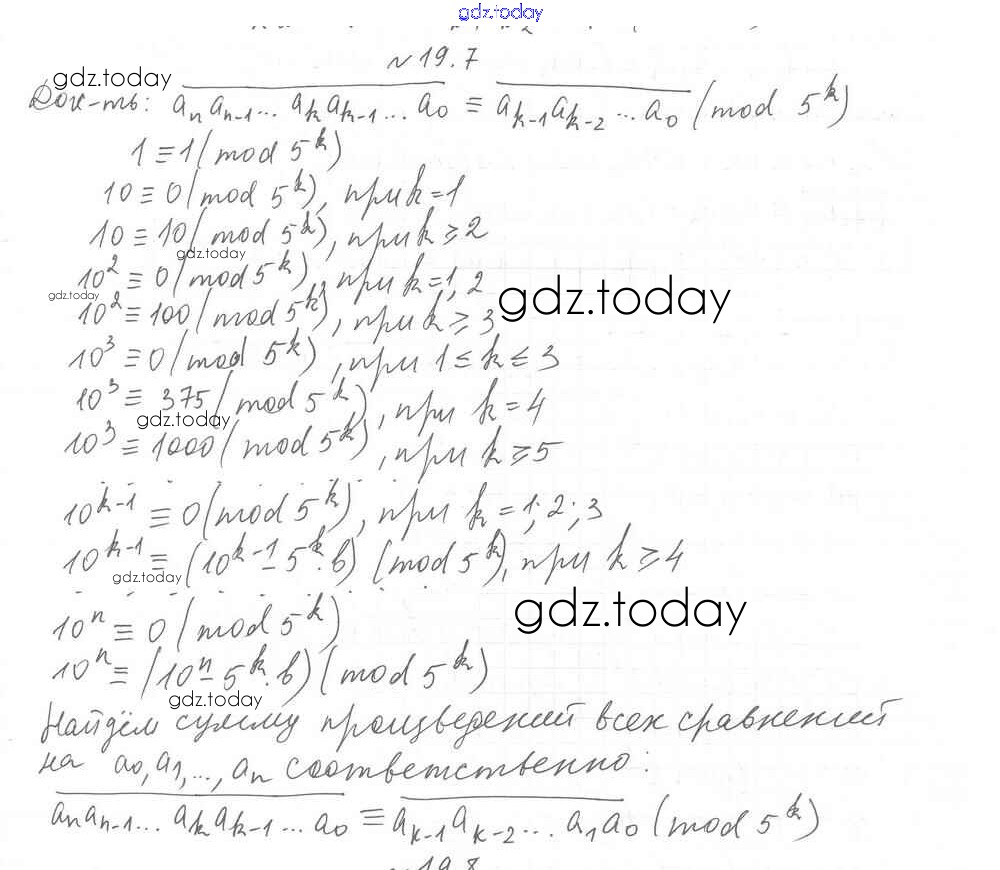 gdz.today
№19.7
gdz.today
Док-ть: a_n a_{n-1}... a_k a_{k-1}... a_0 ≡ a_{k-1} a_{k-2} ... a_0 (mod 5^k)
1 ≡ 1 (mod 5^k)
10 ≡ 0 (mod 5^k), при k=1
10 ≡ 10 (mod 5^k), при k ≥ 2
gdz.today
10^2 ≡ 0 (mod 5^k), при k=1, 2
gdz.today
gdz.today
10^2 ≡ 100 (mod 5^k), при k ≥ 3
10^3 ≡ 0 (mod 5^k), при 1 ≤ k ≤ 3
10^3 ≡ 375 (mod 5^k), при k = 4
gdz.today
10^3 ≡ 1000 (mod 5^k), при k ≥ 5
10^{k-1} ≡ 0 (mod 5^k), при k = 1; 2; 3
10^{k-1} ≡ (10^{k-1} - 5^k · b) (mod 5^k), при k ≥ 4
gdz.today
gdz.today
10^n ≡ 0 (mod 5^k)
10^n ≡ (10^n - 5^k · b) (mod 5^k)
gdz.today
Найдём сумму произведений всех сравнений
на a_0, a_1, ..., a_n соответственно:
a_n a_{n-1}... a_k a_{k-1}... a_0 ≡ a_{k-1} a_{k-2} ... a_1 a_0 (mod 5^k)
№19.8